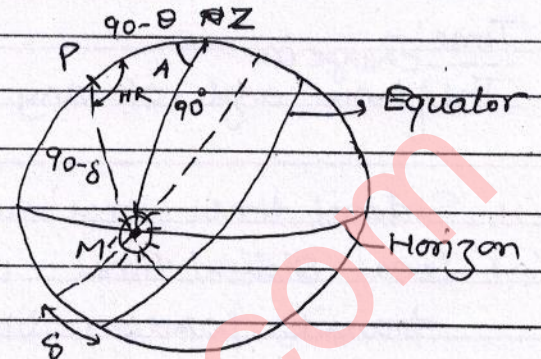 90-θ Z
P
A
HR
90°
Equator
90-δ
M
Horizon
δ
com